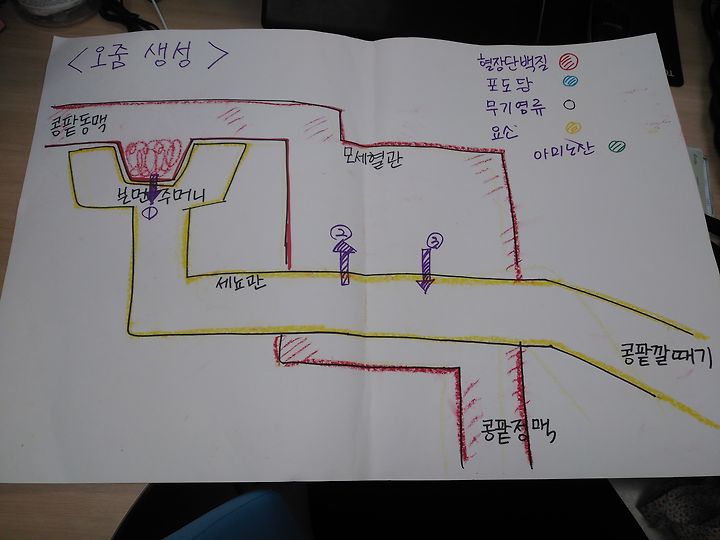 <오줌 생성>
혈장단백질
포도당
무기염류
요소
아미노산
콩팥동맥
모세혈관
보먼주머니
①
②
③
세뇨관
콩팥깔때기
콩팥정맥